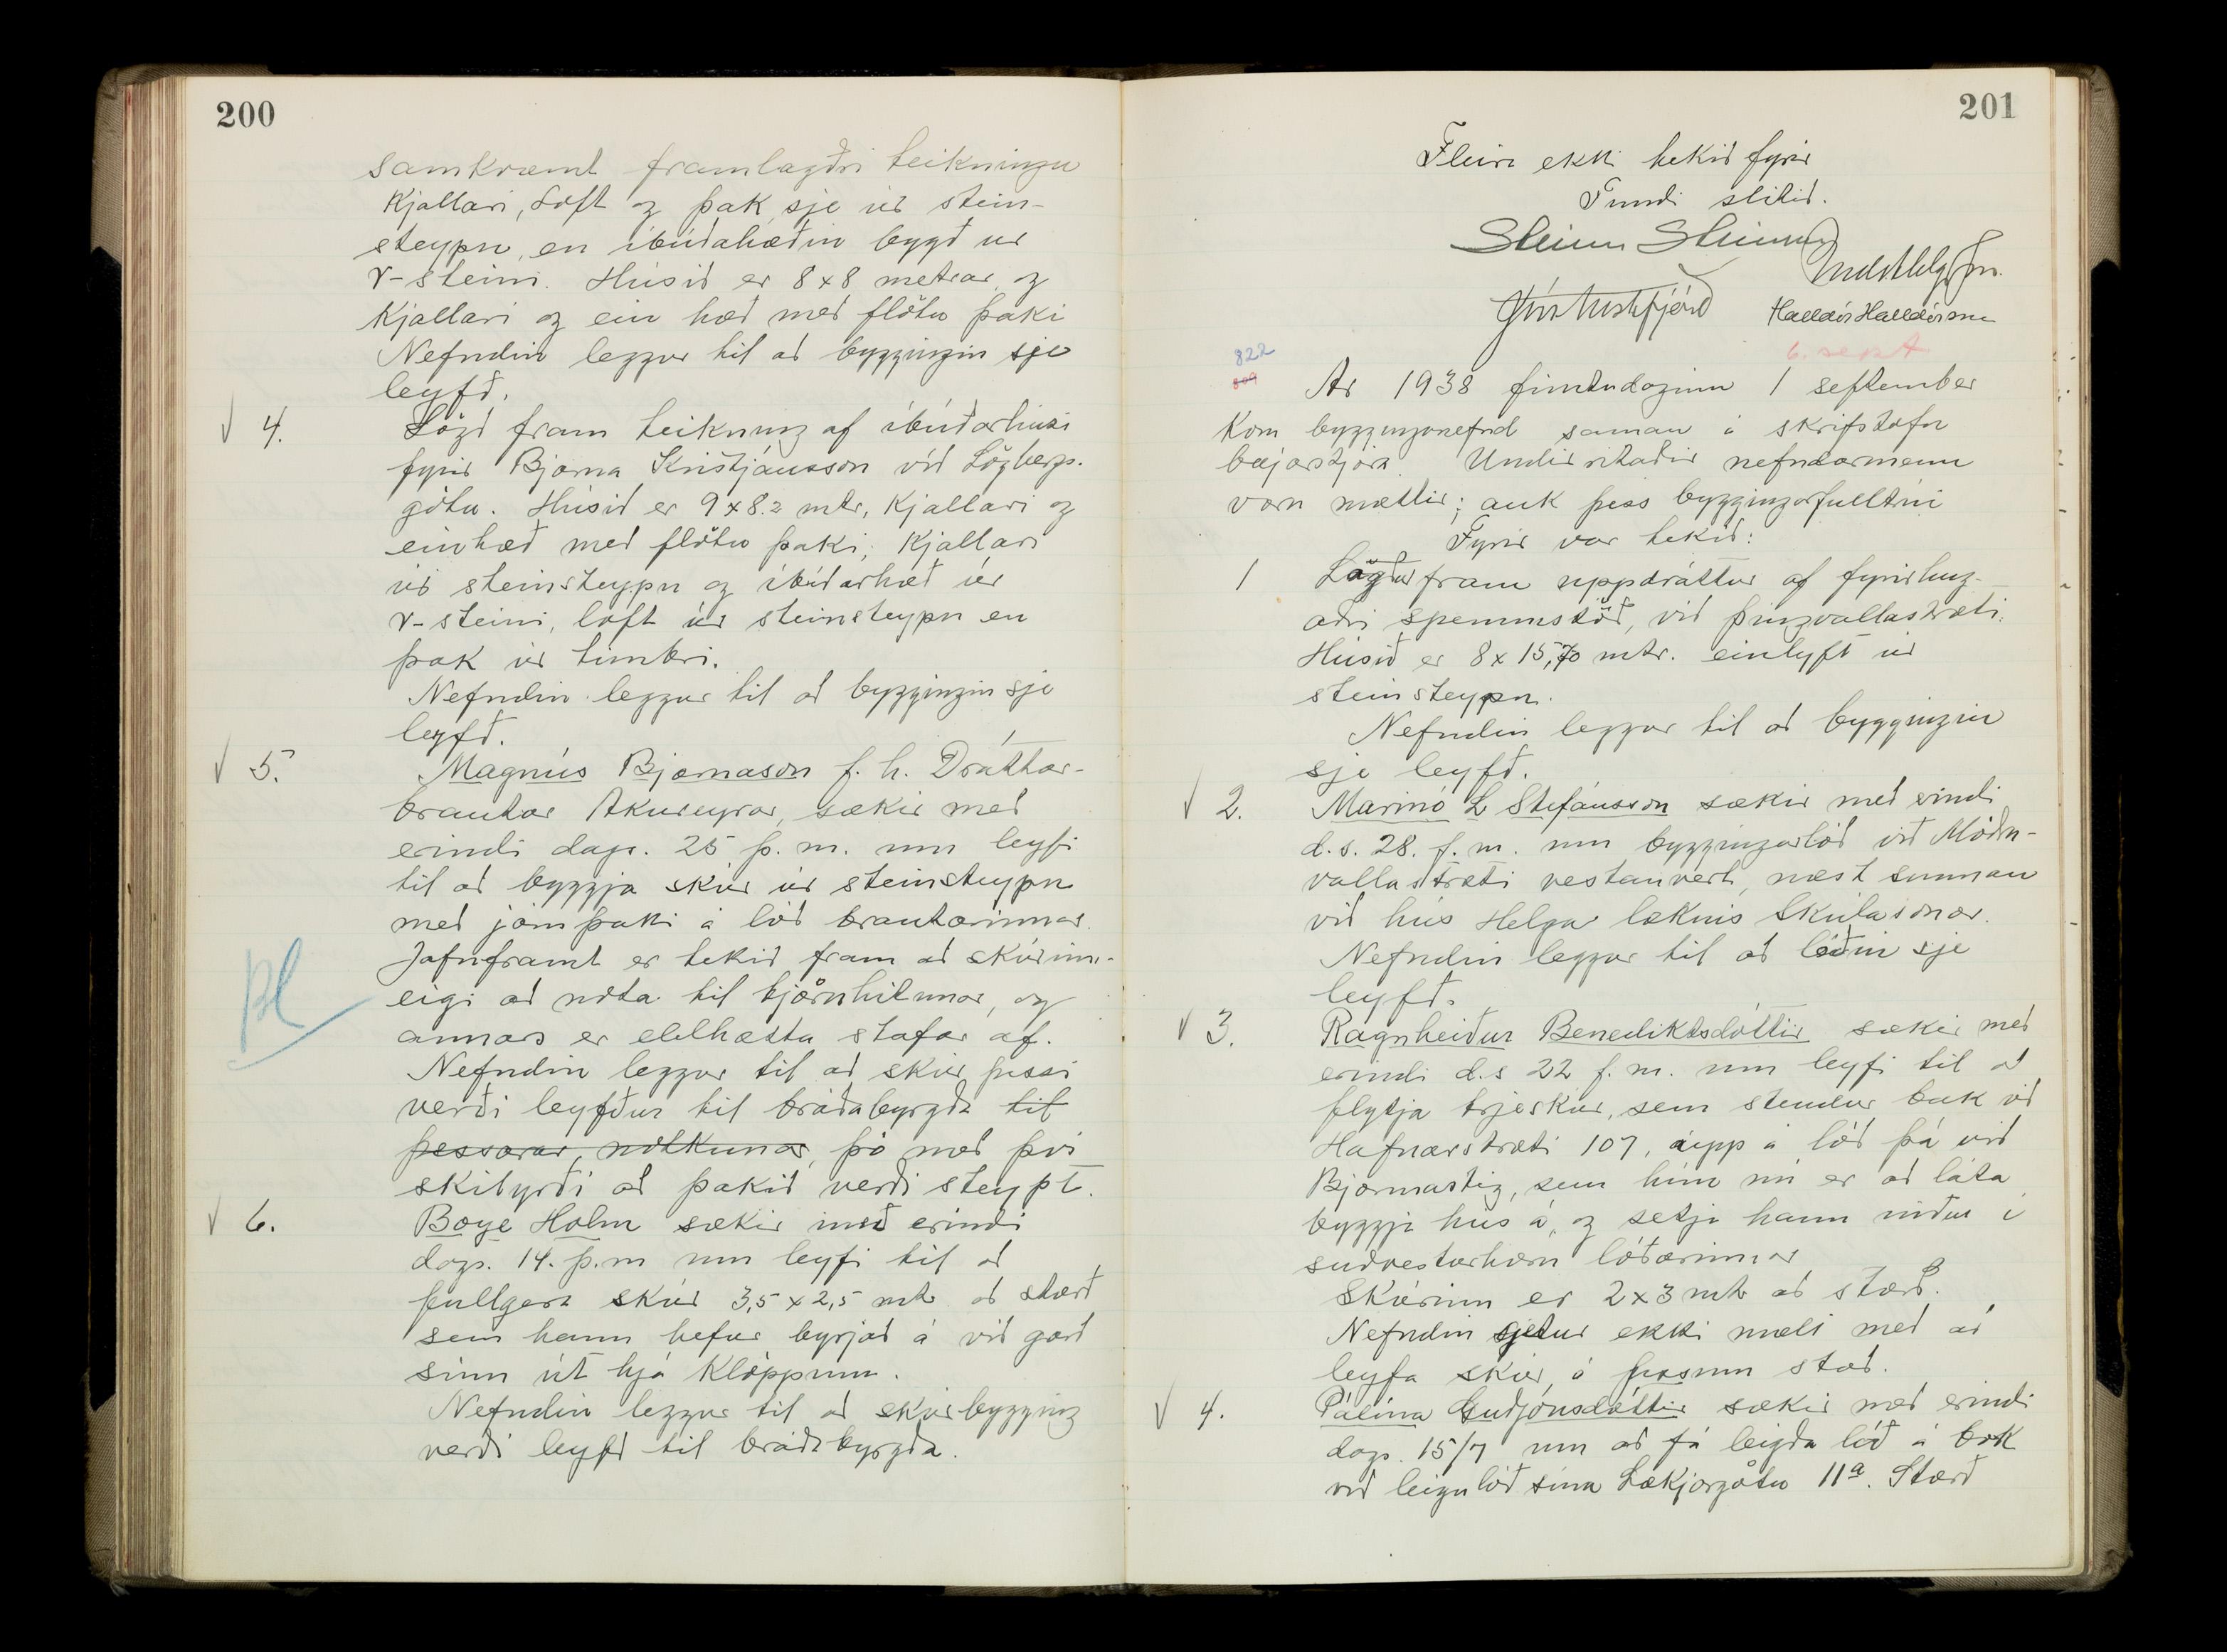 200
samkvæmt framlagðri teikningu
Kjallari, Loft og þak sje úr stein-
steypu, en íbúðahæðin bygð úr
r-steini. Húsið er 8x8 metrar, og
Kjallari og ein hæð með flötu þaki
Nefndin leggur til að byggingin sje
leyfð.
√ 4. Lögð fram teikning af íbúðarhúsi
fyrir Bjarna Kristjánsson við Lögbergs-
götu. Húsið er 9x8.2 mtr, Kjallari og
einhæð með flötu þaki, Kjallari
úr steinsteypu og íbúðarhæð úr
r-steini, loft úr steinsteypu en
þak úr timbri.
Nefndin leggur til að byggingin sje
leyfð.
√ 5. Magnús Bjarnason f. h. Dráttar-
brautar Akureyrar, sækir með
erindi dags. 25 þ. m. um leyfi
til að byggja skúr úr steinsteypu
með járnþaki á lóð brautarinnar.
Jafnframt er tekið fram að skúrinn
eigi að nota til tjöruhitunar, og
annars er eldhætta stafar af.
Nefndin leggur til að skúr þessi
verði leyfður til bráðabyrgða til
þessarar notkunar, þó með því
skilyrði að þakið verði steypt.
√ 6. Boye Holm sækir með erindi
dags. 14. þ.m um leyfi til að
fullgera skúr 3,5 x 2,5 mtr að stærð
sem hann hefur byrjað á við garð
sinn út hjá Klöppum.
Nefndin leggur til að skúrbygging
verði leyfð til bráðabyrgða.
201
Fleira ekki tekið fyrir
Fundi slitið.
Steinn Steinsen
Halldór Halldórsson
6. sept
822
Ár 1938 fimtudaginn 1 september
Kom bygginganefnd saman á skrifstofu
bæjarstjóra. Undirritaðir nefndarmenn
voru mættir; auk þess byggingarfulltrúi
Fyrir var tekið:
1 Lagður fram uppdráttur af fyrirhug-
aðri spennustöð, við Þingvallastræti.
Húsið er 8x15,70 mtr. einlyft úr
steinsteypu.
Nefndin leggur til að byggingin
sje leyfð.
√ 2. Marinó L Stefánsson sækir með erindi
d.s. 28. f. m. um byggingarlóð við Möðru-
vallastræti vestanvert, næst sunnan
við hús Helga læknis Skúlasonar.
Nefndin leggur til að lóðin sje
leyfð.
√ 3. Ragnheiður Benediktsdóttir sækir með
erindi d.s 22 f. m. um leyfi til að
flytja trjeskúr, sem stendur bak við
Hafnarstræti 107, upp á lóð þá við
Bjarmastíg, sem hún nú er að láta
byggja hús á, og setja hann niður í
suðvesturhorn lóðarinnar
Skúrinn er 2x3 mtr að stærð.
Nefndin getur ekki mælt með að
leyfa skúr á þessum stað.
√ 4. Pálína Guðjónsdóttir sækir með erindi
dags. 15/7 um að fá leigða lóð á bak
við leigulóð sína Lækjargötu 11a. Stærð